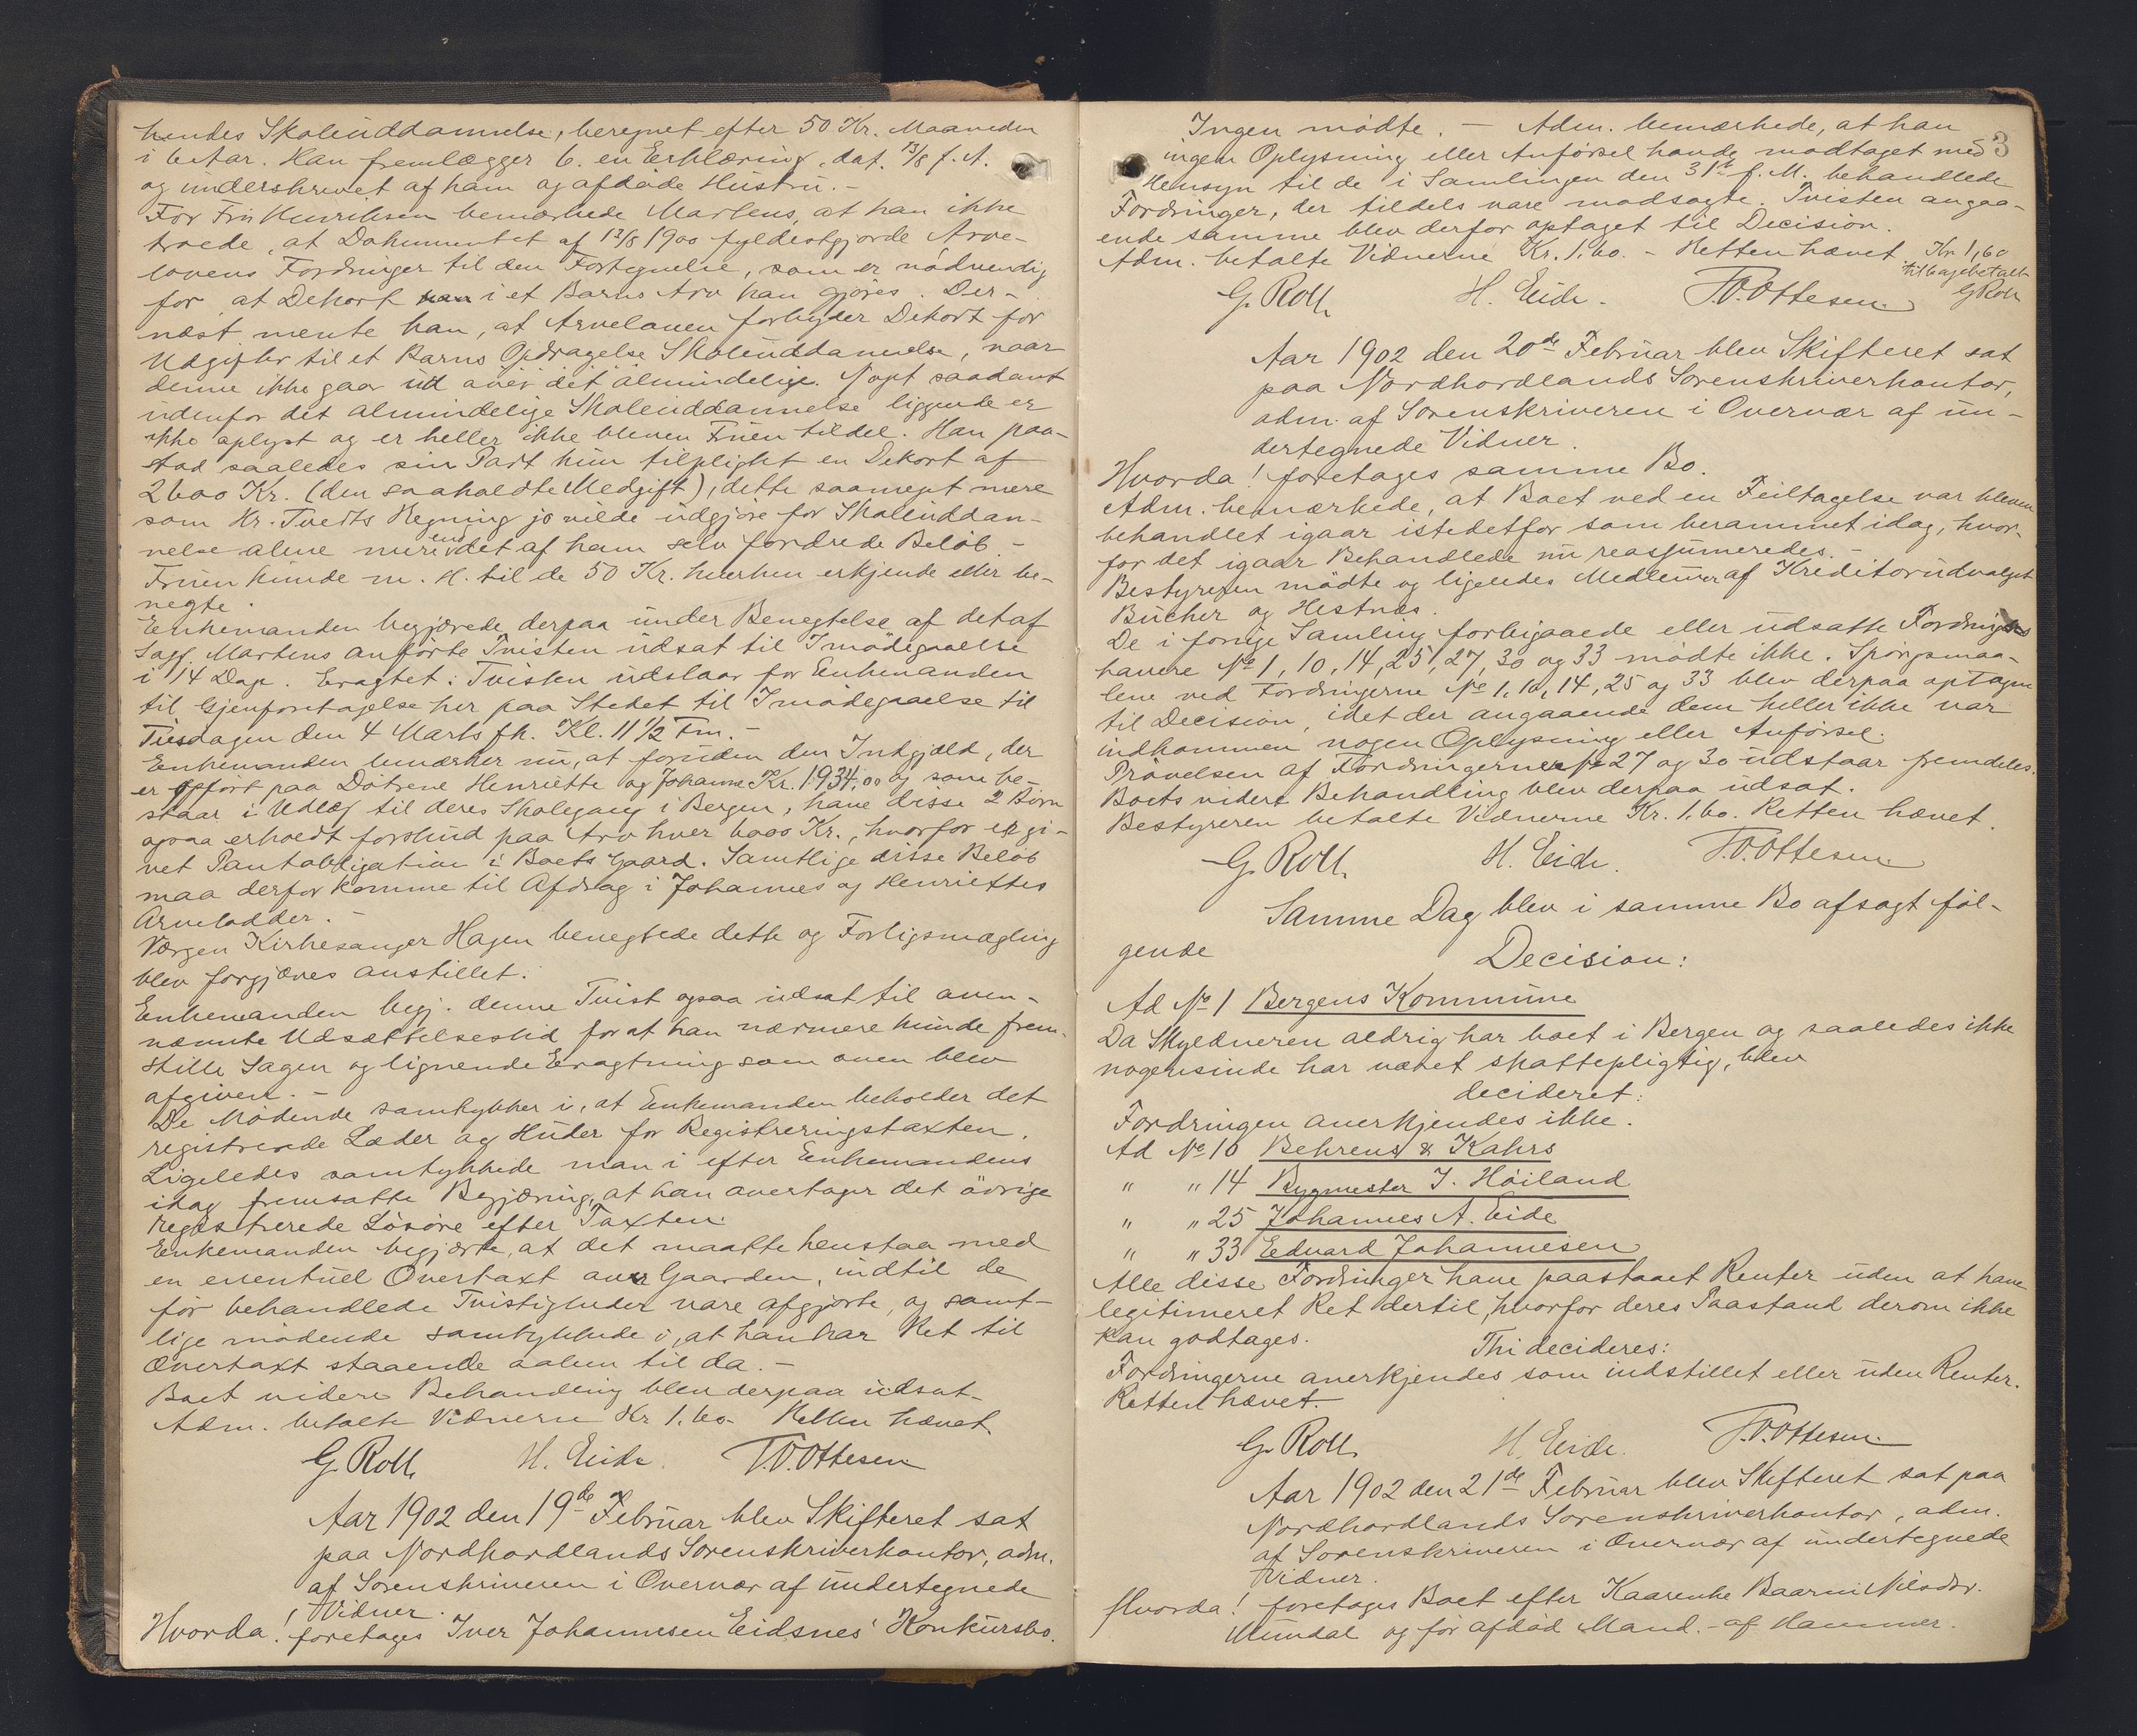 hendes Skoleuddannelse, beregnet efter 50 Kr. Maaneden
i 6 Aar. Han fremlægger 6. en Erklæring, dat. 13/8 f. A.
og underskrevet af ham og afdøde Hustru. -
For Fru Henriksen bemærkede Martens, at han ikke
troede, at Dokumentet af 13/8 1900 fyldestgjorde Arve-
lovens Fordringer til den Fortegnelse, som er nødvendig
for at Dekort i et Barns Arv kan gjøres. Der-
næst mente han, at Arveloven forbyder Dekort for
Udgifter til et Barns Opdragelse Skoleuddannelse, naar
denne ikke gaar ud over det almindelige. Noget saadant
udenfor det almindelige Skoleuddannelse liggende er
ikke oplyst og er heller ikke bleven Fruen tildel. Han paa-
stod saaledes sin Part kun tilpligtet en Dekort af
2600 Kr. (den saakaldte Medgift), dette saameget mere
som Hr. Tvedts Regning jo vilde udgjøre for Skoleuddan-
nelse alene mere end det af ham selv fordrede Beløb. -
Fruen kunde m. H. til de 50 Kr. hverken erkjende eller be-
negte.
Enkemanden begjærede derpaa under Benegtelse af det af
Sagf. Martens anførte Tvisten udsat til Imødegaaelse
i 14 Dage. Eragtet: Tvisten udstaar for Enkemanden
til Gjenforetagelse her paa Stedet til Imødegaaelse til
Tirsdagen den 4 Marts fk. Kl. 11 1/2 Fm. -
Enkemanden bemærker nu, at foruden den Indgjæld, der
er opført paa Døtrene Henriette og Johanne Kr. 1934,00 og som be-
staar i Udlæg til deres Skolegang i Bergen, have disse 2 Børn
ogsaa erholdt forskud paa Arv hver 6000 Kr., hvorfor er gi-
vet Pantobligation i Boets Gaard. Samtlige disse Beløb
maa derfor komme til Afdrag i Johannes og Henriettes
Arvelodder. -
Værgen Kirkesanger Hagen benegtede dette og Forligsmægling
blev forgjæves anstillet.
Enkemanden begj. denne Tvist ogsaa udsat til oven-
nævnte Udsættelsestid for at han nærmere kunde frem-
stille Sagen og lignende Eragtning som oven blev
afgivet. -
De Mødende samtykker i, at Enkemanden beholder det
registrerede Læder og Huder for Registreringstaxten.
Ligeledes samtykkede man i efter Enkemandens
idag fremsatte Begjæring, at han overtager det øvrige
registrerede Løsøre efter Taxten.
Enkemanden begjærte, at det maatte henstaa med
en eventuel Overtaxt over Gaarden, indtil de
før behandlede Tvistigheder vare afgjorte, og samt-
lige mødende samtykkede i, at han har Ret til
Overtaxt staaende aaben til da. -
Boet videre Behandling blev derpaa udsat-
Adm. betalte Vidnerne Kr 1.60. Retten hævet
G. Roll. H. Eide. T.O. Ottesen
Aar 1902 den 19de Februar blev Skifteret sat
paa Nordhordlands Sorenskriverkontor, adm.
af Sorenskriveren i Overvær af undertegnede
Vidner.
Hvorda! foretages Iver Johannesen Eidsnes' Konkursbo.
3
Ingen mødte. - Adm. bemærkede, at han
ingen Oplysning eller Anførsel havde modtaget med
Hensyn til de i Samlingen den 31te f. M. behandlede
Fordringer, der tildels vare modsagte. Tvisten angaa-
ende samme blev derfor optaget til Decision.
Adm. betalte Vidnerne Kr. 1.60. - Retten hævet
Kr 1,60
tilbagebetalt
G Roll
G. Roll. H. Eide. T.O. Ottesen
Aar 1902 den 20de Februar blev Skifteret sat
paa Nordhordlands Sorenskriverkontor,
adm. af Sorenskriveren i Overvær af un-
dertegnede Vidner.
Hvorda! foretages samme Bo.
Adm. bemærkede, at Boet ved en Feiltagelse var bleven
behandlet igaar istedetfor som berammet idag, hvor-
for det igaar Behandlede nu reassumeredes. -
Bestyreren mødte og ligeledes Medlemmer af Kreditorudvalget
Bücher og Hestnæs.
De i forrige Samling forbigaaede eller udsatte Fordrings
havere No 1, 10, 14, 25, 27, 30 og 33 mødte ikke. Spørgsmaa-
lene ved Fordringerne No 1, 10, 14, 25 og 33 blev derpaa optagne
til Decision, idet der angaaende dem heller ikke var
indkommen nogen Oplysning eller Anførsel.
Prøvelsen af Fordringerne No 27 og 30 udstaar fremdeles.
Boets videre Behandling blev derpaa udsat.
Bestyreren betalte Vidnerne Kr. 1.60. Retten hævet.
G. Roll. H. Eide. T.O. Ottesen
Samme Dag blev i samme Bo afsagt føl-
gende
Decision:
Ad No 1 Bergens Kommune
Da Skyldneren aldrig har boet i Bergen og saaledes ikke
nogensinde har været skattepligtig, blev
decideret:
Fordringen anerkjendes ikke.
Ad No 10 Behrens & Kahrs
" " 14 Bygmester J. Høiland
" " 25 Johannes A. Eide
" " 33 Eduard Johannesen
Alle disse Fordringer have paastaaet Renter uden at have
legitimeret Ret dertil, hvorfor deres Paastand derom ikke
kan godtages.
Thi decideres:
Fordringerne anerkjendes som indstillet eller uden Renter.
Retten hævet. -
G. Roll. H. Eide. T.O. Ottesen
Aar 1902 den 21de Februar blev Skifteret sat paa
Nordhordlands Sorenskriverkontor, adm.
af Sorenskriveren i Overvær af undertegnede
Vidner.
Hvorda! foretages Boet efter Kaarenke Baarni Nilsdtr.
Mundal og før afdød Mand. - af Hammer.